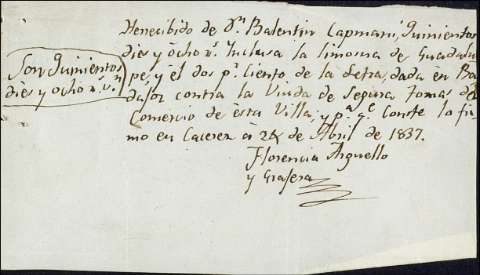 He recibido de Dn. Balentin Capmani, quinientos
dies y ócho rs. Inclusa la limosna de Guadalu
pe, y él dos pr. Ciento de la letra, dada en Ba
dajos contra la Viuda de Segura tomas del
Comercio de ésta Villa, y pa. qe. Conste lo fir
mo en Caceres a 24 de Abril de 1837.
Florencia Arguello
y Grajera
Son quinientos
dies y ócho rs. vn.